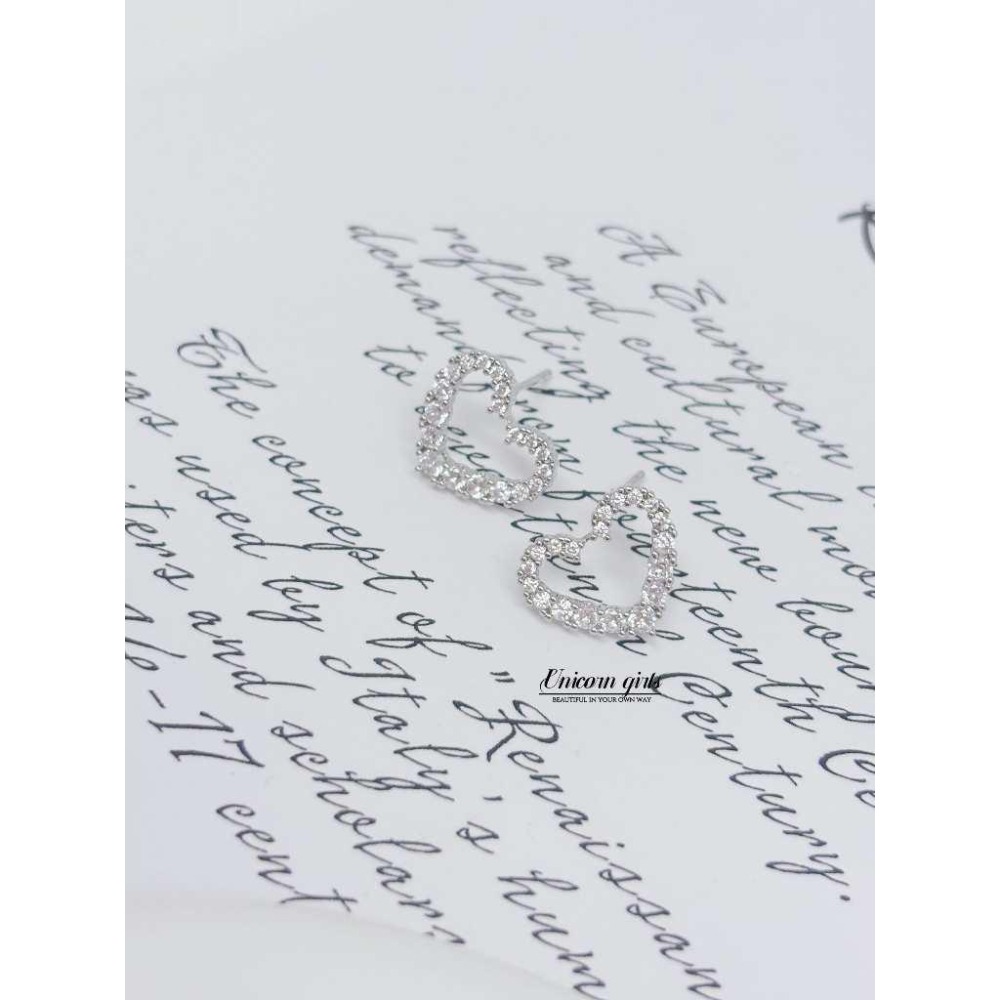 A European
and cultural mo
reflecting the new bour
demand from fourteenth Ce
to seventeenth Century.
The concept of "Renaissan
as used by Italy's hum
iters and scholars
4/p-17 cent
Unicorn girls
BEAUTIFUL IN YOUR OWN WAY